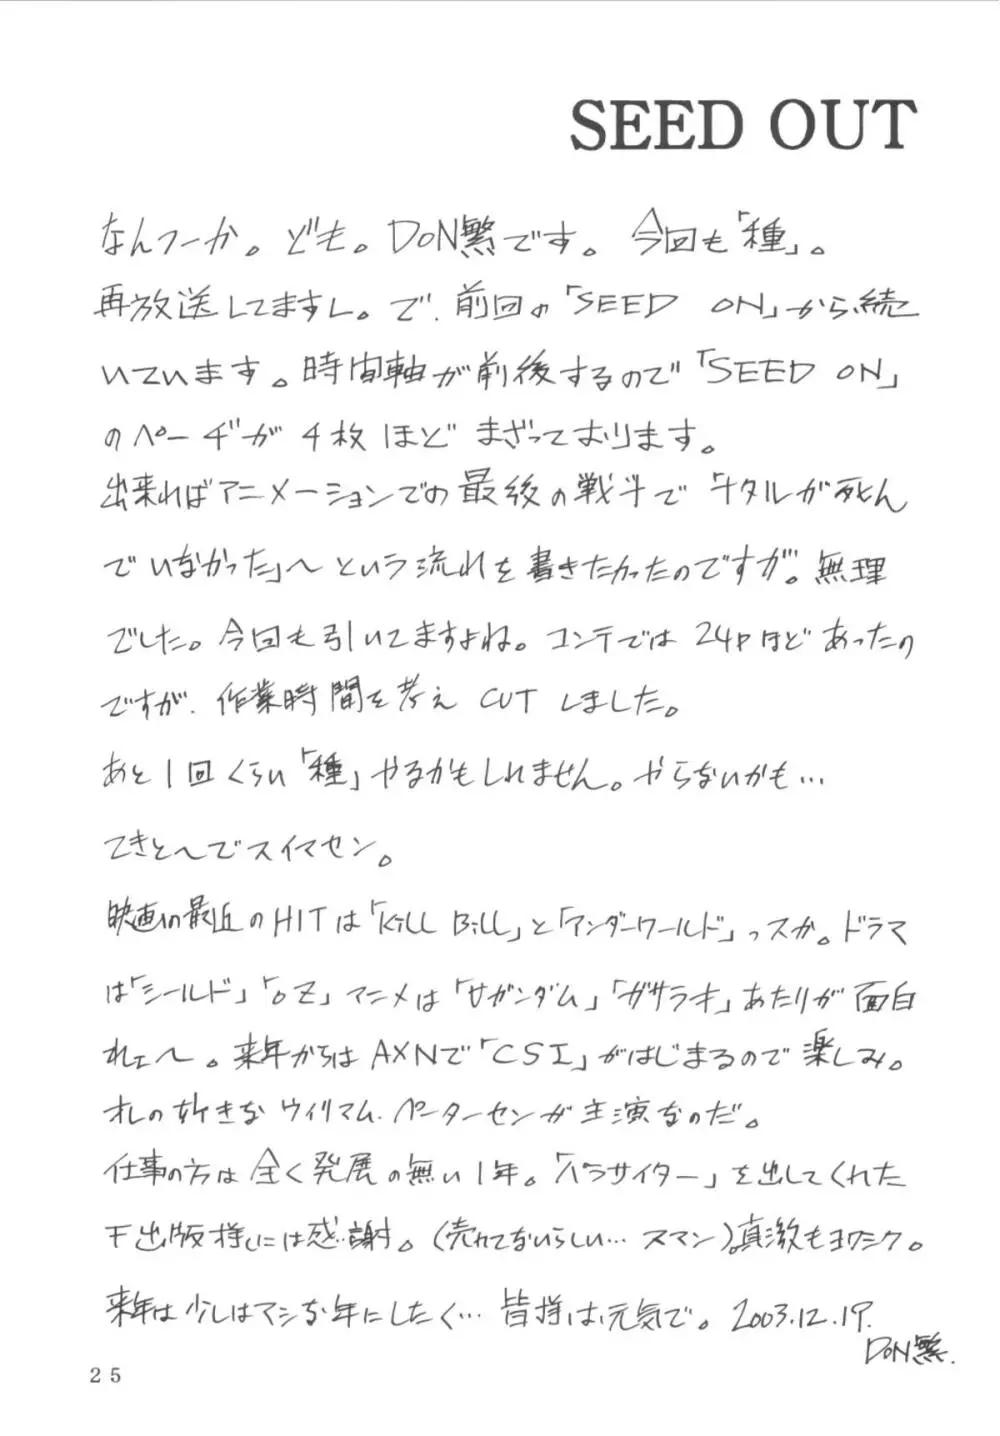 SEED OUT
なんつーか。ども。DON繁です。今回も「種」。
再放送してますし。で、前回の「SEED ON」から続
いています。時間軸が前後するので「SEED ON」
のページが4枚ほどまざっております。
出来ればアニメーションでの最後の戦斗で「ナタルが死ん
でいなかった」〜という流れを書きたかったのですが。無理
でした。今回も引いてますよね。コンテでは24Pほどあったの
ですが、作業時間を考えCUTしました。
あと1回くらい「種」やるかもしれません。やらないかも…
てきと〜でスイマセン。
映画の最近のHITは「Kill Bill」と「アンダーワールド」っスか。ドラマ
は「シールド」「OZ」アニメは「Vガンダム」「ガサラキ」あたりが面白
れェ〜。来年からはAXNで「CSI」がはじまるので楽しみ。
オレの好きなウイリアム・ペーターセンが主演なのだ。
仕事の方は全く発展の無い1年。「パラサイター」を出してくれた
出版様には感謝。(売れてないらしい…スマン)。真激もヨロシク。
来年は少しはマシな年にしたく…皆様は元気で。2003.12.19.
DON繁.
25